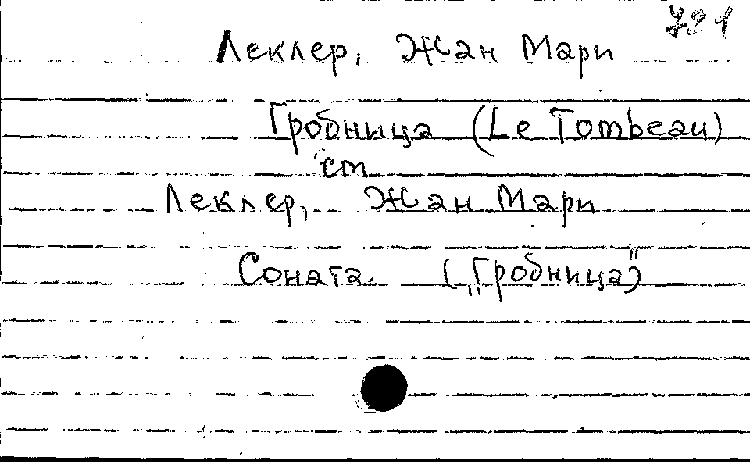 721
Леклер, Жан Мари
Гробница (Le Tombeau)
см
Леклер, Жан Мари
Соната. („Гробница")